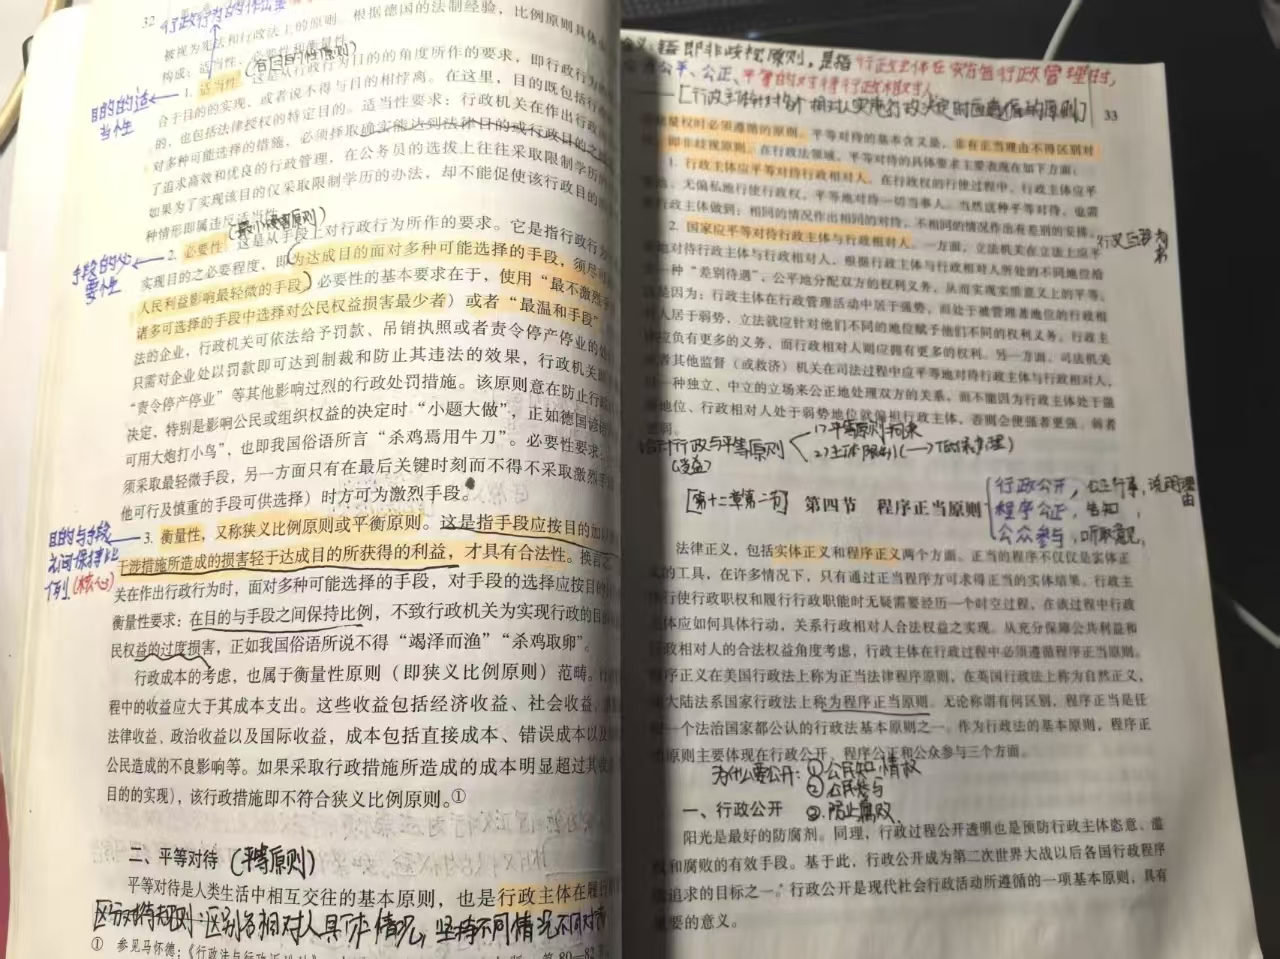 32
行政行为的作出要
被视为宪法和行政法上的原则。根据德国的法制经验，比例原则具体
构成：适当性、必要性和衡量性。
(合目的性原则)
1. 适当性。这是从行政行为目的的角度所作的要求，即行政行为
合于目的的实现，或者说不得与目的相悖离。在这里，目的既包括行政
的，也包括法律授权的特定目的。适当性要求：行政机关在作出行政
对多种可能选择的措施，必须择取确实能达到法律目的或行政目的之
了追求高效和优良的行政管理，在公务员的选拔上往往采取限制学历的
如果为了实现该目的仅采取限制学历的办法，却不能促使该行政目的
种情形即属违反适当性。
目的的适
当性
(最小侵害原则)
2. 必要性。这是从手段上对行政行为所作的要求。它是指行政行为
实现目的之必要程度，即为达成目的面对多种可能选择的手段，须尽
人民利益影响最轻微的手段。必要性的基本要求在于，使用“最不激烈
诸多可选择的手段中选择对公民权益损害最少者）或者“最温和手段”
法的企业，行政机关可依法给予罚款、吊销执照或者责令停产停业的处
只需对企业处以罚款即可达到制裁和防止其违法的效果，行政机关
“责令停产停业”等其他影响过烈的行政处罚措施。该原则意在防止行政
决定，特别是影响公民或组织权益的决定时“小题大做”，正如德国谚语
可用大炮打小鸟”，也即我国俗语所言“杀鸡焉用牛刀”。必要性要求：
须采取最轻微手段，另一方面只有在最后关键时刻而不得不采取激烈手
他可行及慎重的手段可供选择）时方可为激烈手段。
手段的必
要性
3. 衡量性，又称狭义比例原则或平衡原则。这是指手段应按目的加以
干涉措施所造成的损害轻于达成目的所获得的利益，才具有合法性。换言之
关在作出行政行为时，面对多种可能选择的手段，对手段的选择应按目的
衡量性要求：在目的与手段之间保持比例，不致行政机关为实现行政的目的
民权益的过度损害，正如我国俗语所说不得“竭泽而渔”“杀鸡取卵”。
目的与手段
之间保持比
例(核心)
行政成本的考虑，也属于衡量性原则（即狭义比例原则）范畴。
程中的收益应大于其成本支出。这些收益包括经济收益、社会收益、
法律收益、政治收益以及国际收益，成本包括直接成本、错误成本以及
公民造成的不良影响等。如果采取行政措施所造成的成本明显超过其
目的的实现），该行政措施即不符合狭义比例原则。①
二、平等对待 (平等原则)
平等对待是人类生活中相互交往的基本原则，也是行政主体在履行
区分对待规则：区别各相对人具体情况，坚持不同情况不同对待
① 参见马怀德：《行政法与行政诉讼法》
即非歧视原则，是指行政主体在实施行政管理时，
公平、公正、平等的对待行政相对人
33
量权时必须遵循的原则。平等对待的基本含义是，非有正当理由不得区别对
即非歧视原则。在行政法领域，平等对待的具体要求主要表现在如下方面：
1. 行政主体应平等对待行政相对人。在行政权的行使过程中，行政主体应平
、无偏私地行使行政权，平等地对待一切当事人。当然这种平等对待，也需
行政主体做到：相同的情况作出相同的对待，不相同的情况作出有差别的安排。
2. 国家应平等对待行政主体与行政相对人。一方面，立法机关在立法上应平
地对待行政主体与行政相对人，根据行政主体与行政相对人所处的不同地位给
一种“差别待遇”，公平地分配双方的权利义务，从而实现实质意义上的平等。
是因为：行政主体在行政管理活动中居于强势，而处于被管理者地位的行政相
人居于弱势，立法就应针对他们不同的地位赋予他们不同的权利义务。行政主
应负有更多的义务，而行政相对人则应拥有更多的权利。另一方面，司法机关
者其他监督（或救济）机关在司法过程中应平等地对待行政主体与行政相对人，
一种独立、中立的立场来公正地处理双方的关系，而不能因为行政主体处于强
地位、行政相对人处于弱势地位就偏袒行政主体，否则会使强者更强、弱者
给付行政与平等原则
(受益)
1) 平等原则拘束
[第十二章第二节] 第四节 程序正当原则
行政公开，
程序公正，告知，
公众参与，听取意见
法律正义，包括实体正义和程序正义两个方面。正当的程序不仅仅是实体正
义的工具，在许多情况下，只有通过正当程序方可求得正当的实体结果。行政主
行使行政职权和履行行政职能时无疑需要经历一个时空过程，在该过程中行政
体应如何具体行动，关系行政相对人合法权益之实现。从充分保障公共利益和
行政相对人的合法权益角度考虑，行政主体在行政过程中必须遵循程序正当原则。
序正义在美国行政法上称为正当法律程序原则，在英国行政法上称为自然正义，
大陆法系国家行政法上称为程序正当原则。无论称谓有何区别，程序正当是任
一个法治国家都公认的行政法基本原则之一。作为行政法的基本原则，程序正
原则主要体现在行政公开、程序公正和公众参与三个方面。
为什么要公开：① 公民知情权
② 公民参与
③ 防止腐败
一、行政公开
阳光是最好的防腐剂。同理，行政过程公开透明也是预防行政主体恣意、滥
和腐败的有效手段。基于此，行政公开成为第二次世界大战以后各国行政程序
追求的目标之一。行政公开是现代社会行政活动所遵循的一项基本原则，具有
重要的意义。